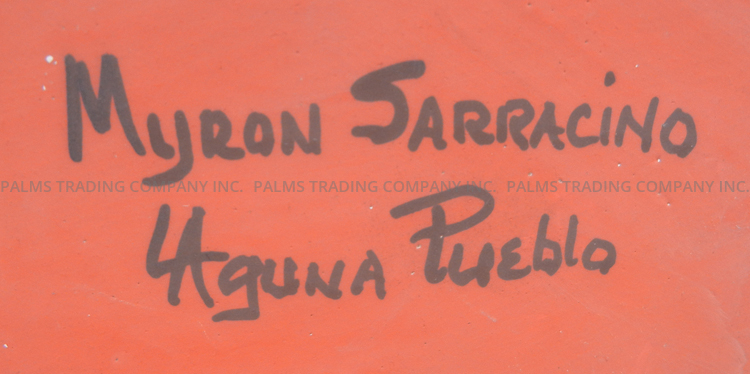 Myron Sarracino
PALMS TRADING COMPANY INC. PALMS TRADING COMPANY INC. PALMS TRADING COMPANY INC.
Laguna Pueblo